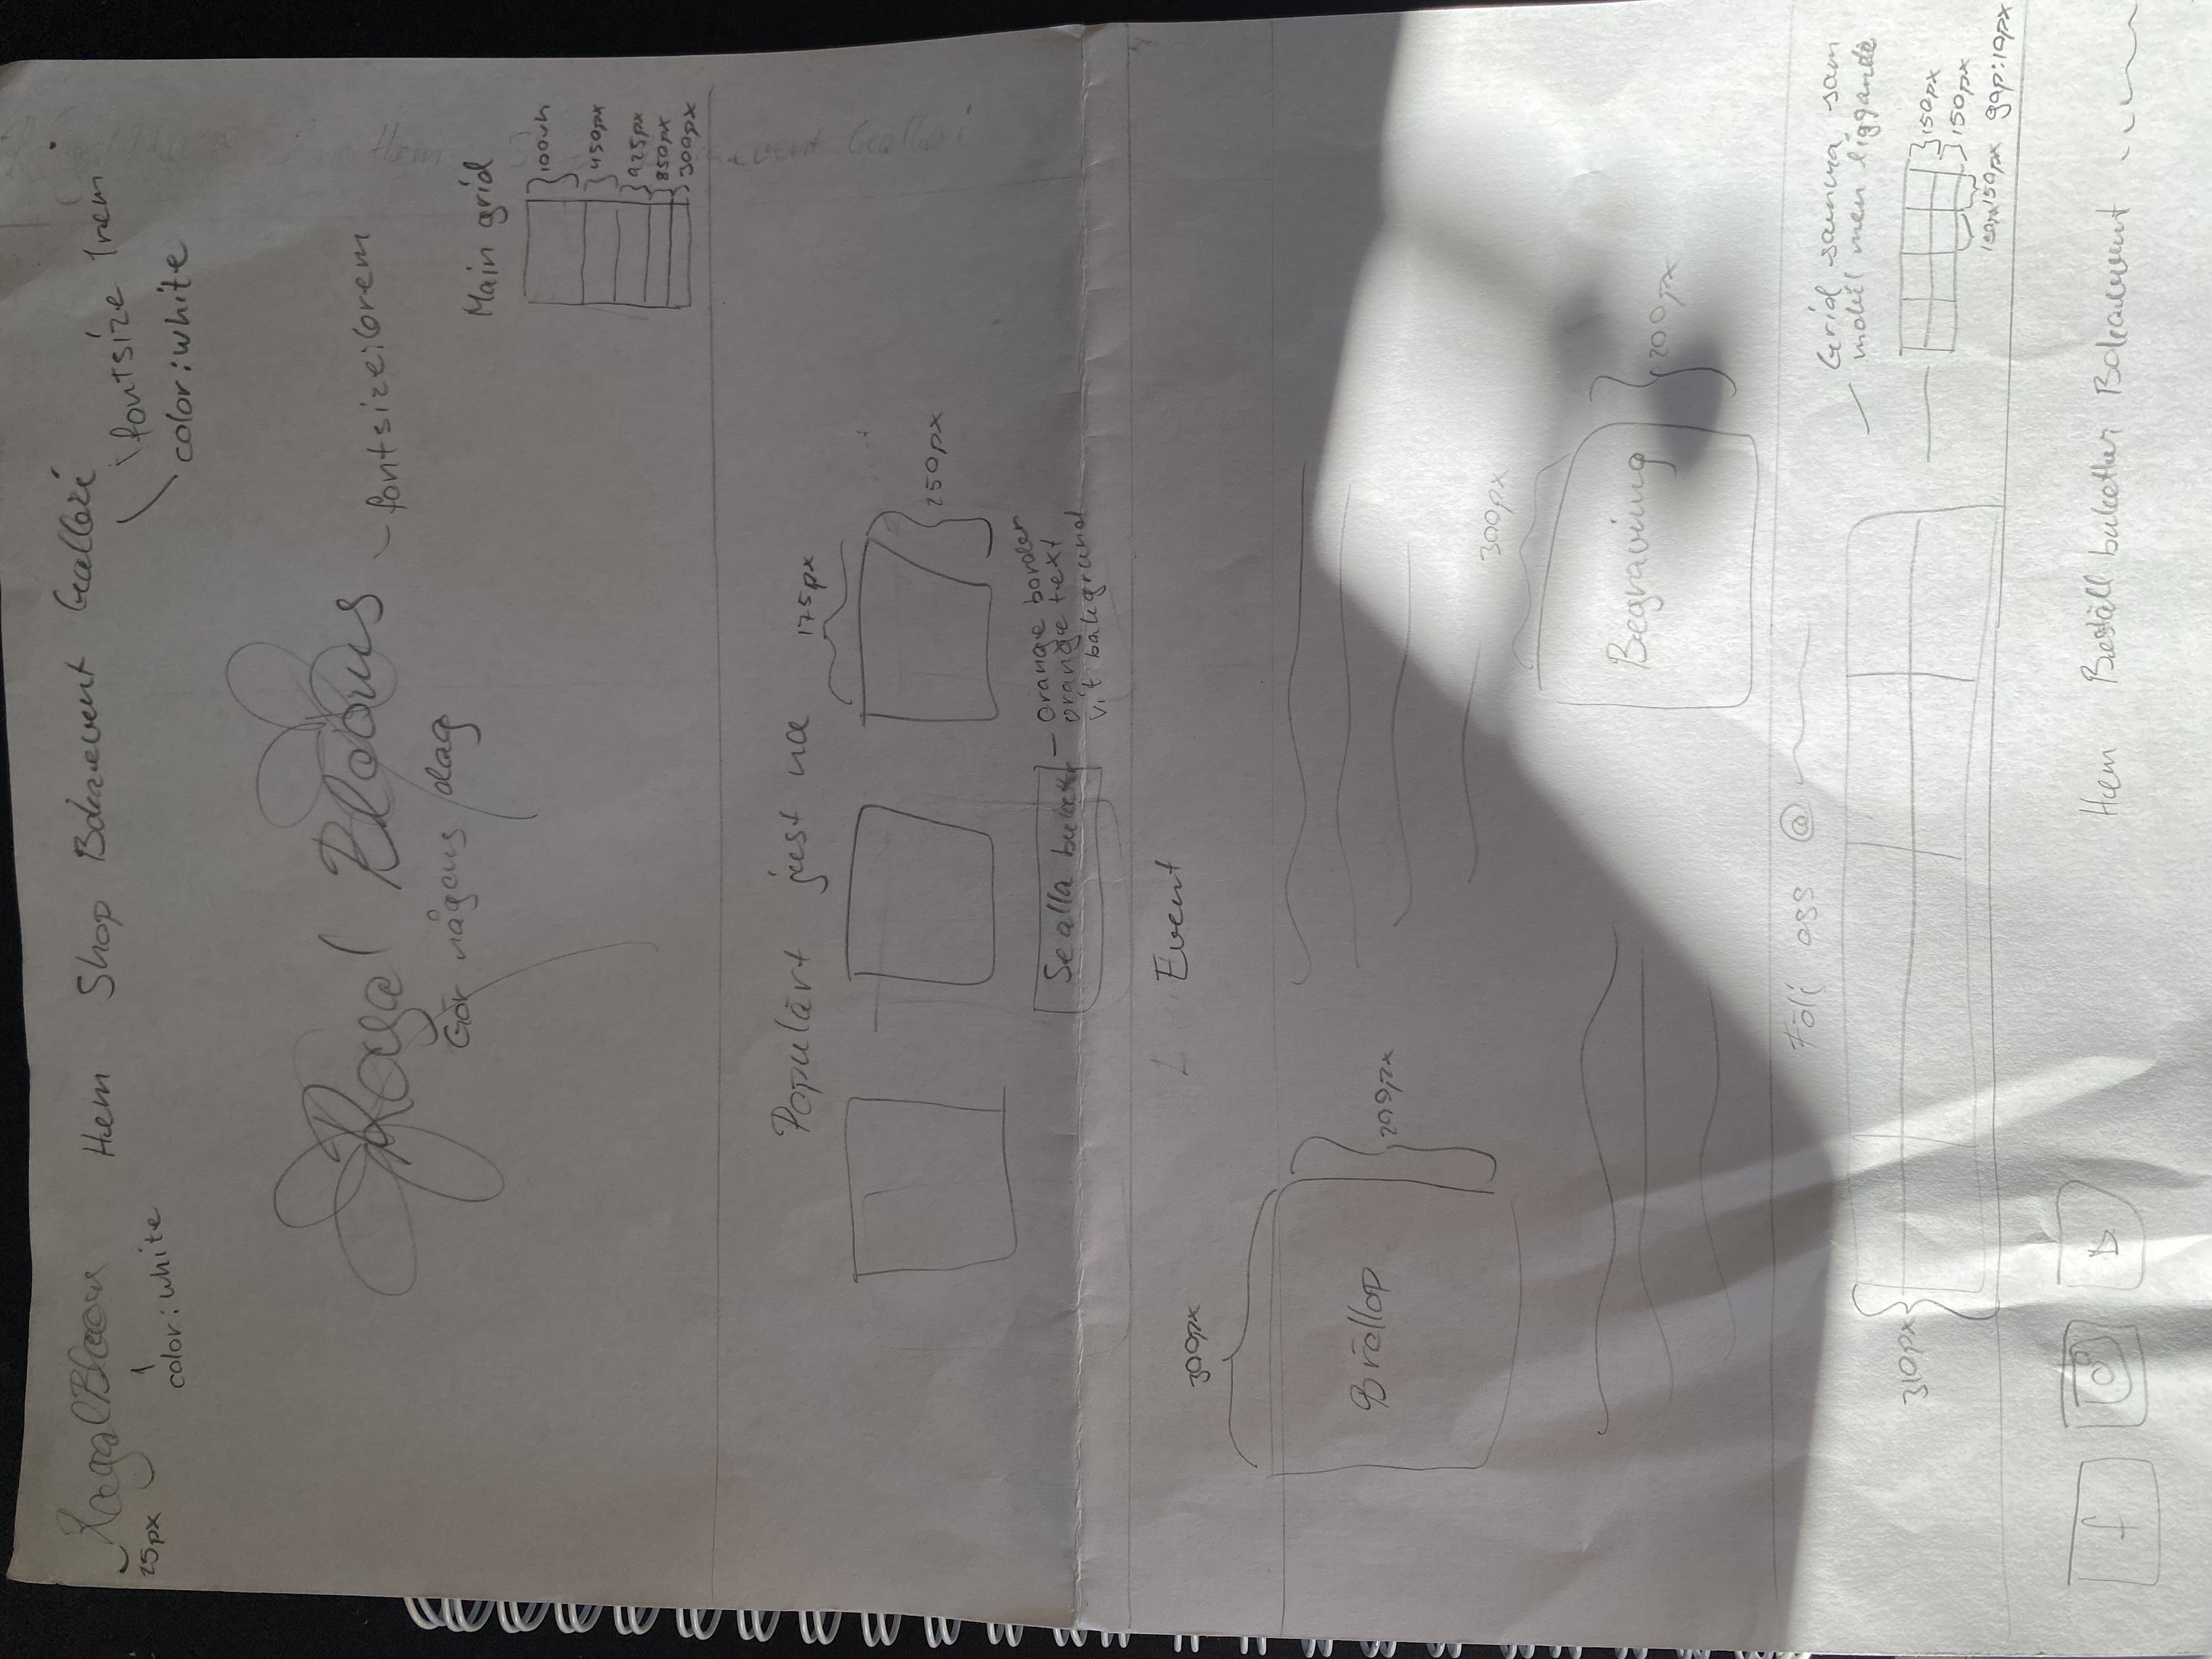 Royal Bloom Hem Shop Boka event Galleri
25px
color: white
fontsize 1rem
color: white
Royal Blooms
fontsize: 6rem
Gör någons dag
Main grid
100vh
450px
925px
850px
300px
Populärt just nu
175px
250px
Se alla buketter
Orange border
orange text
vit bakgrund
Event
300px
Bröllop
200px
300px
Begravning
200px
Följ oss @
Grid samma som
mobil men liggande
310px
150px
150px
150px 150px gap: 10px
f
Hem Beställ buketter Boka event